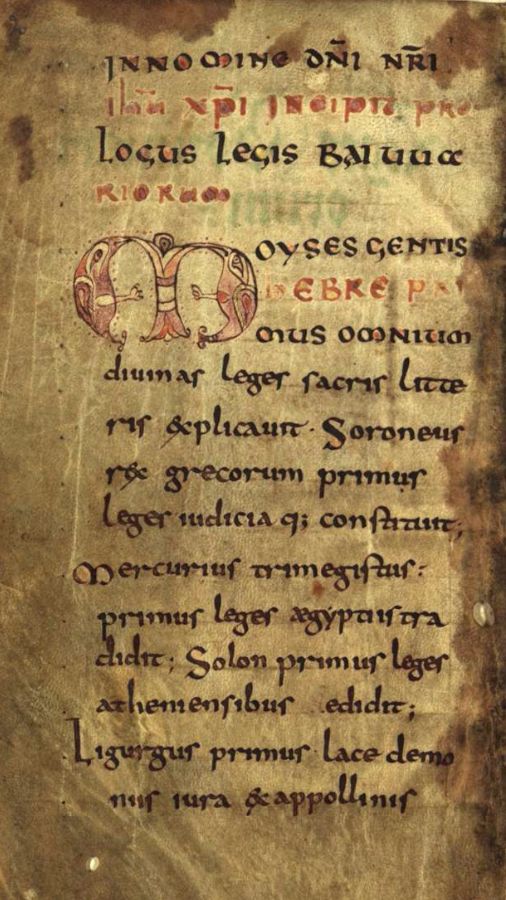 INNOMINE DN̄I NR̄I
ihū xp̄i INCIPIT PRO
LOGUS LEGIS BAIUUA
RIORUM
MOYSES GENTIS
HEBRE PRI
MUS OMNIUM
diuinas leges sacris litte
ris explicauit · Soroneus
rex grecorum primus
leges iudicia q; constituit;
Mercurius trimegistus:
primus leges aegyptiis tra
didit; Solon primus leges
atheniensibus edidit;
Ligurgus primus lacedemo
niis iura & appollinis